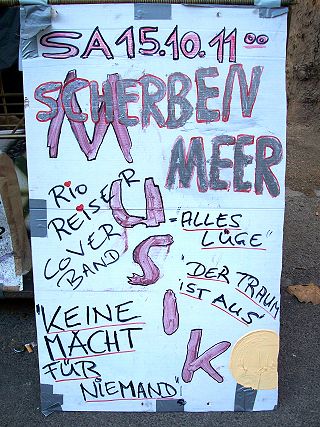 SA 15.10.11⁰⁰
SCHERBEN
MEER
MUSIK
RIO
REISER
COVER
BAND
"ALLES
LÜGE"
"DER TRAUM
IST AUS"
"KEINE
MACHT
FÜR
NIEMAND"